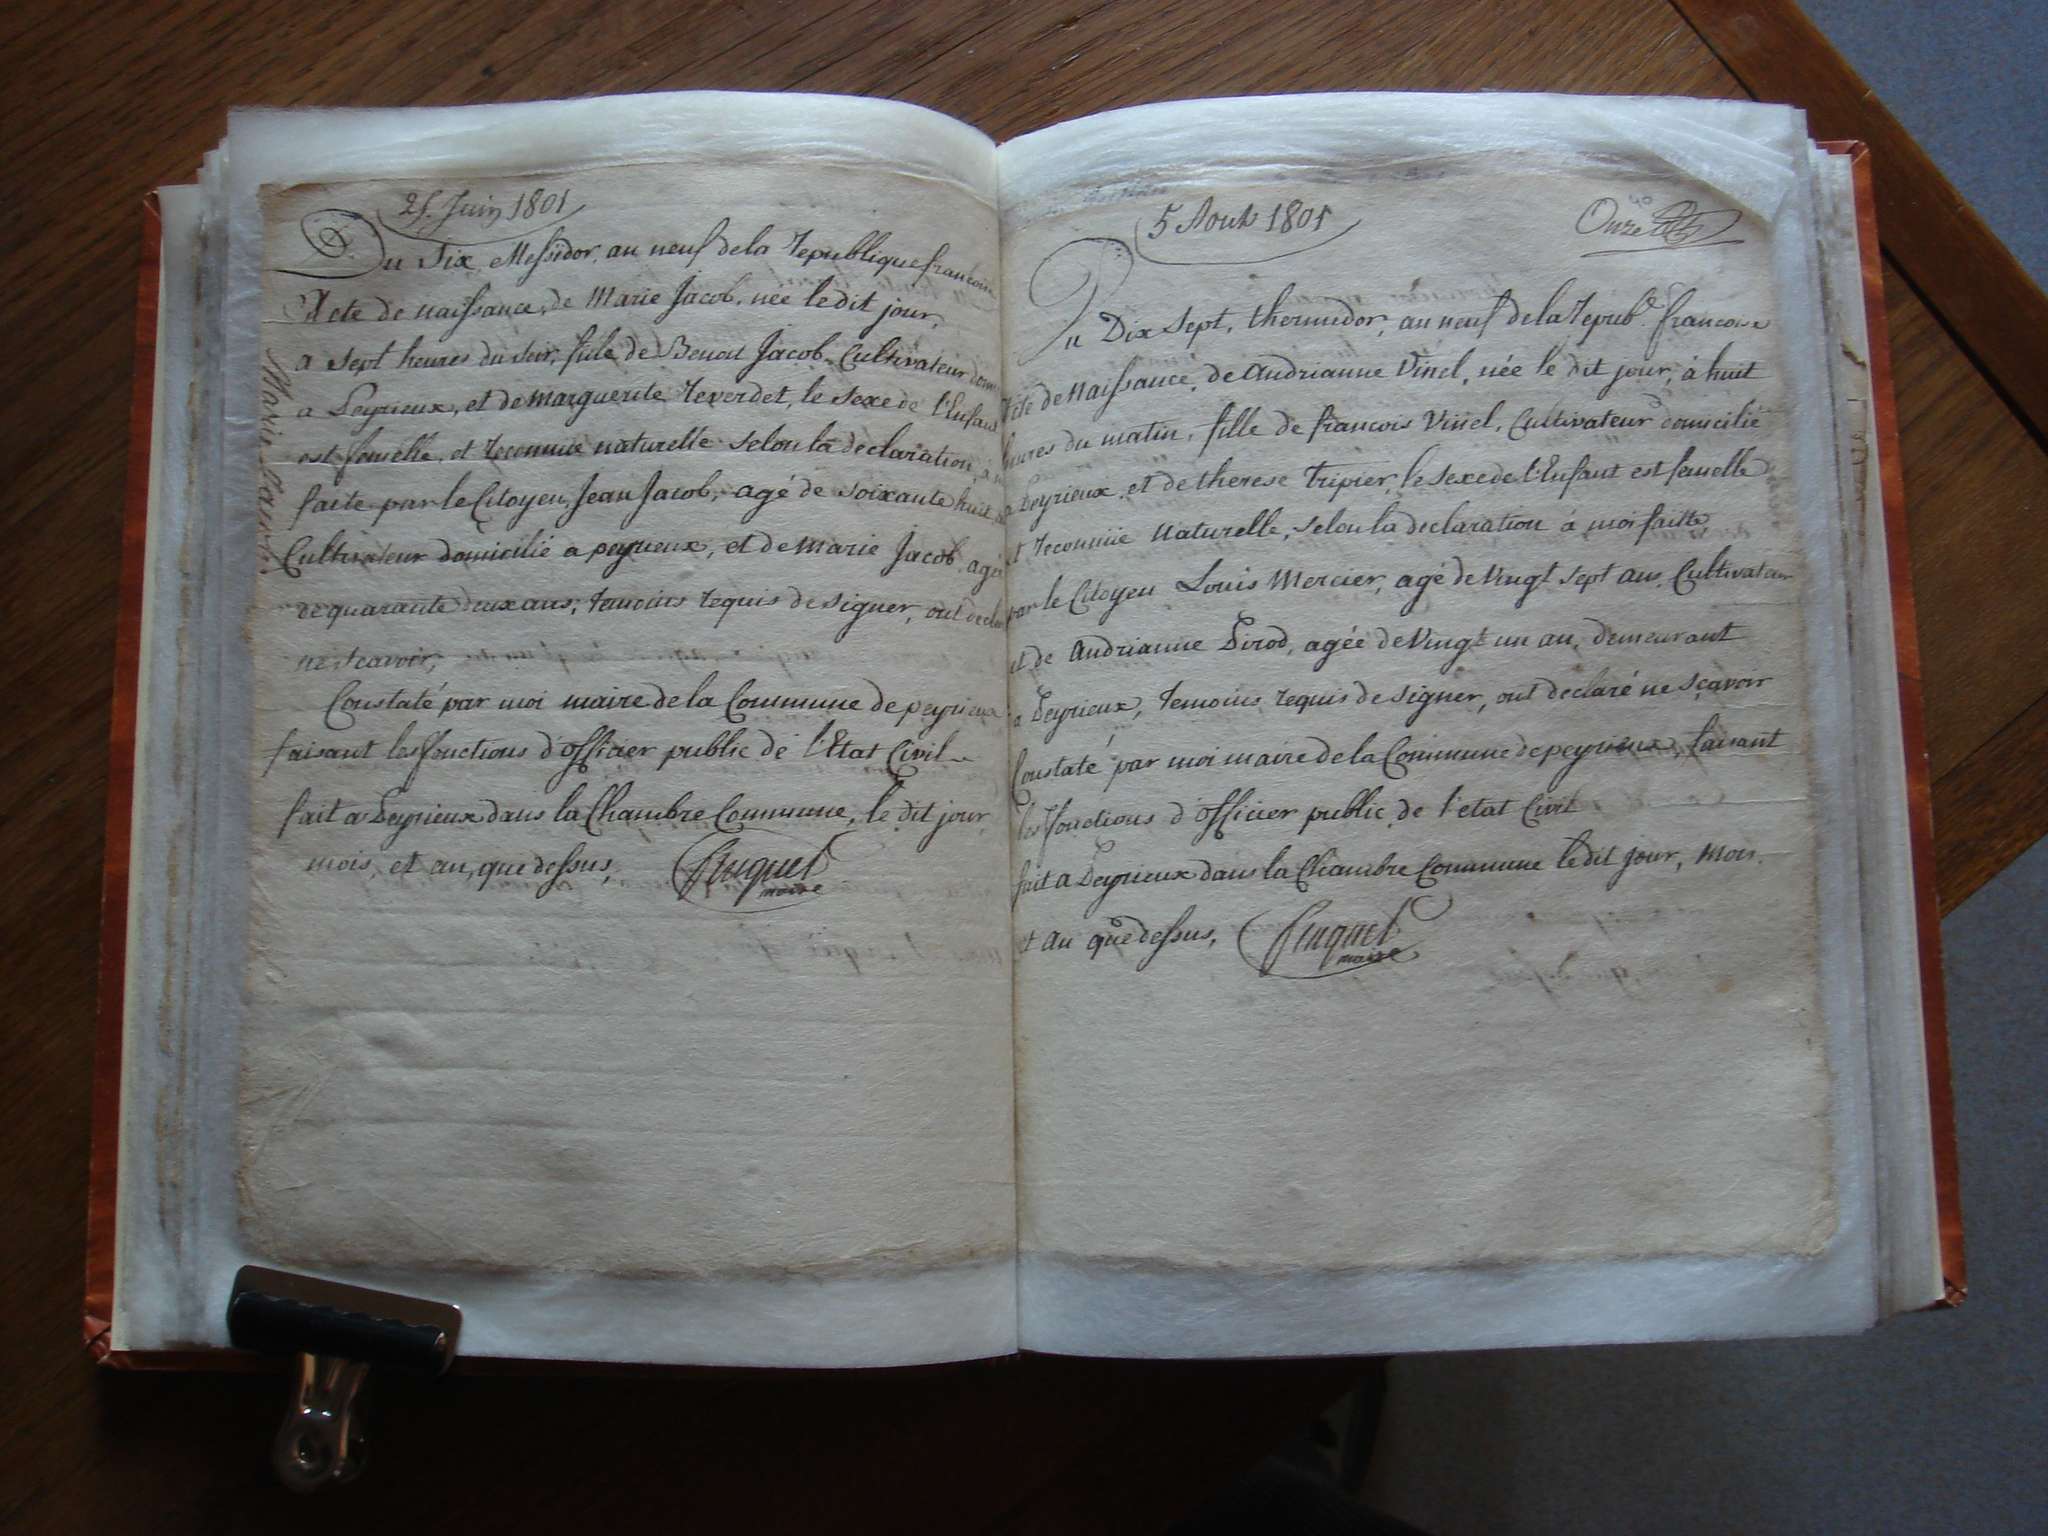 25. Juin 1801
Du Six Messidor, an neuf de la republique francoise
Acte de naissance, de Marie Jacob, née le dit jour,
a sept heures du soir, fille de Benoit Jacob Cultivateur dom
a Peyrieux, et de marguerite Reverdet, le sexe de l'Enfant
est femelle, et reconnue naturelle selon la declaration, a m
faite par le Citoyen, Jean Jacob, agé de soixante huit
Cultivateur domicilié a peyrieux, et de marie Jacob, agée
de quarante deux ans, temoins requis de signer, ont declaré
ne scavoir,
Constaté par moi maire de la Commune de peyrieux
faisant les fonctions d'officier public de l'Etat Civil
fait a Peyrieux dans la Chambre Commune, le dit jour,
mois, et an, que dessus,
maire
Marie Jacob
5 Aout 1801
Onze
Du Dix Sept, thermidor, an neuf de la repub.e francoise
Acte de Naissance, de Andrianne Vinel, née le dit jour, à huit
heures du matin, fille de francois Vinel, Cultivateur domicilié
a Peyrieux, et de therese Tripier, le sexe de l'Enfant est femelle
et reconnüe Naturelle, selon la declaration à moi faitte,
par le Citoyen Louis Mercier, agé de Vingt sept ans, Cultivateur
et de Andrianne Pirod, agée de Vingt un an, demeurant
a Peyrieux, temoins requis de signer, ont declaré ne sçavoir
Constaté par moi maire de la Commune de peyrieux, faisant
les fonctions d'officier public de l'etat Civil
fait a Peyrieux dans la Chambre Commune le dit jour, mois
et an que dessus,
maire